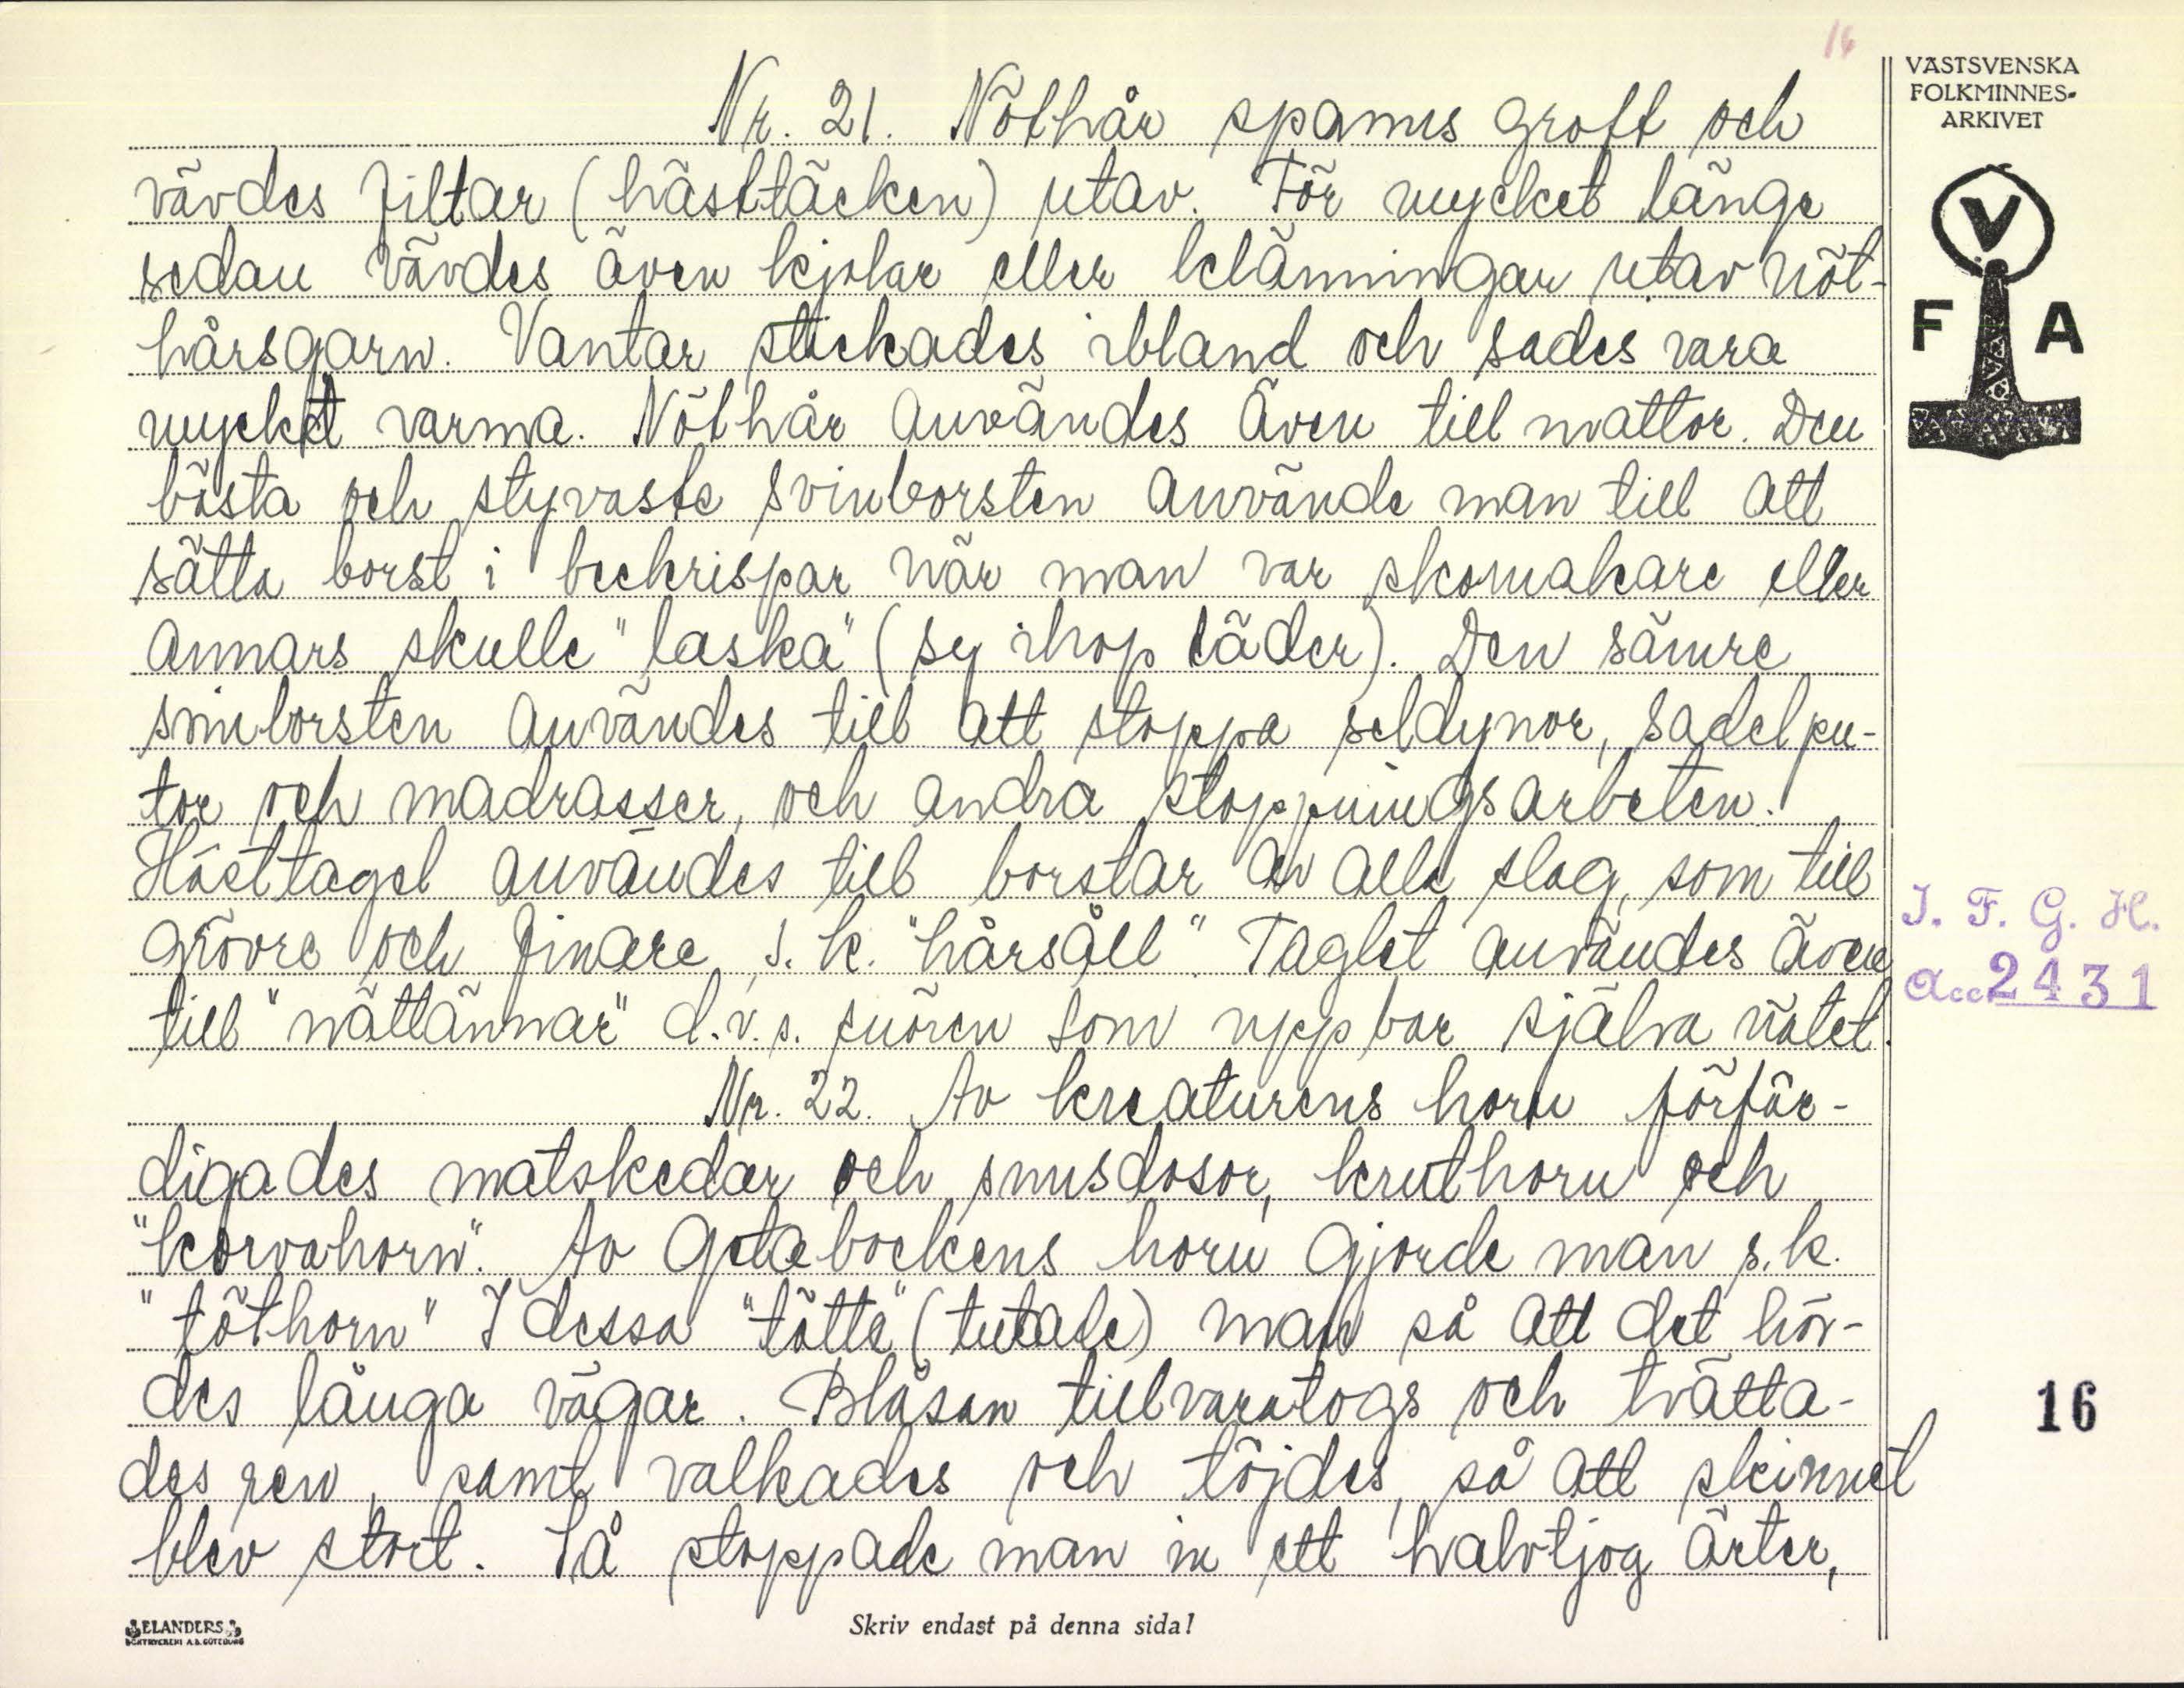 16
VÄSTSVENSKA
FOLKMINNES-
ARKIVET
V
F A
Nr. 21. Nöthår spanns groft och
vävdes filtar (hästtäcken) utav. För mycket länge
sedan vävdes även kjolar eller klänningar utav nöt-
hårsgarn. Vantar stickades ibland och sades vara
mycket varma. Nöthår användes även till mattor. Den
bästa och styvaste svinborsten använde man till att
sätta borst i beckrispar när man var skomakare eller
annars skulle "laska" (sy ihop läder). Den sämre
svinborsten användes till att stoppa seldynor, sadelpu-
tor och madrasser, och andra stoppningsarbeten.
Hästtagel användes till borstar av alla slag, som till
grövre och finare s.k. "hårsåll". Taglet användes även
till "nättännar" d.v.s. snören som uppbar själva nätet.
Nr. 22. Av kreaturens horn förfär-
digades matskedar och snusdosor, kruthorn och
"korvahorn". Av getabockens horn gjorde man s.k.
"töthorn" I dessa "tötte" (tutade) man så att det hör-
des långa vägar. Blåsan tillvaratogs och tvätta-
des ren, samt valkades och töjdes, så att skinnet
blev stort. Så stoppade man in ett halvtjog ärter,
I. F. G. H.
Acc 2431
16
ELANDERS
BOKTRYCKERI A.B. GÖTEBORG
Skriv endast på denna sida!